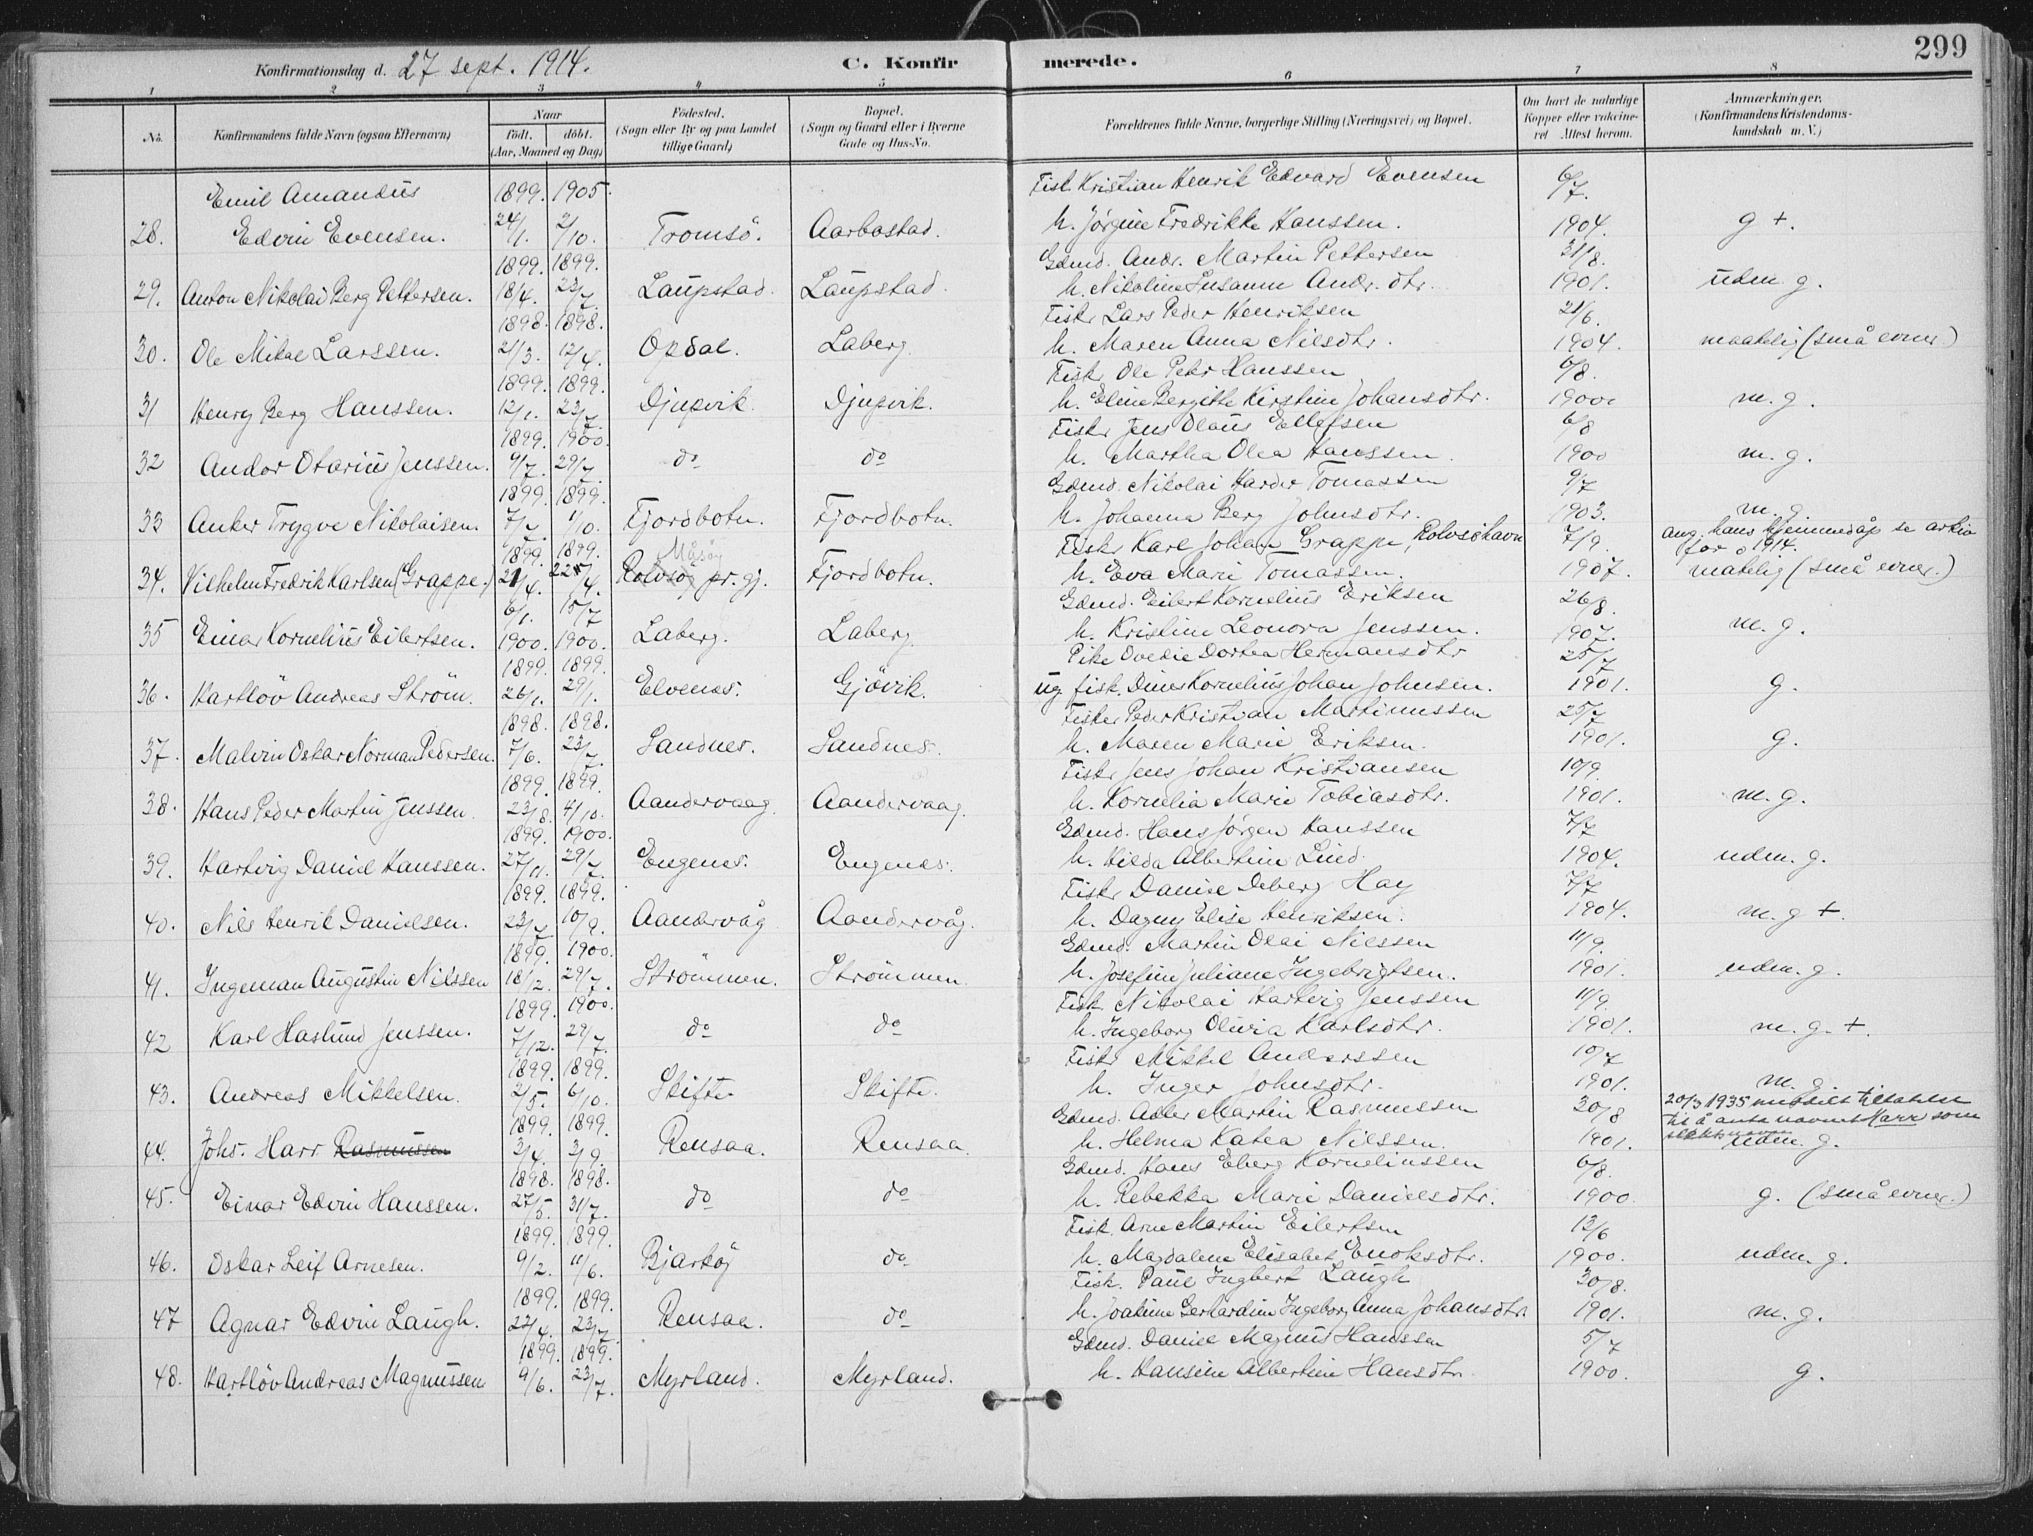 299
Konfirmationsdag d. 27 sept. 1914. C. Konfirmerede.
1 2 3 4 5 6 7 8
No. Konfirmandens fulde Navn (ogsaa Efternavn) Naar født. døbt. (Aar, Maaned og Dag) Fødested. (Sogn eller By og paa Landet tillige Gaard) Bopæl. (Sogn og Gaard eller i Byerne Gade og Hus-No. Forældrenes fulde Navne, borgerlige Stilling (Næringsvei) og Bopæl. Om havt de naturlige Kopper eller vakcineret Attest herom. Anmærkninger. (Konfirmandens Kristendomskundskab m. V.)
Emil Amandus 1899. 1905. Fisk. Kristian Henrik Edvard Evensen 6/7.
28. Edvin Evensen. 24/1. 2/10. Tromsö. Aarbostad. h. Jørgine Fredrikke Hanssen. 1904. g +.
1899. 1899. Gdmd. Andr. Martin Pettersen 31/8.
29. Anton Nikolai Berg Pettersen. 18/4. 23/7. Laupstad. Laupstad. h. Nikoline Susanne Andr. dtr. 1901. udm. g.
1898. 1898. Fisker Lars Peder Henriksen 21/6.
30. Ole Mikal Larssen. 21/3. 12/4. Opdal. Laberg. h. Maren Anna Nilsdtr. 1904. maatelig (små evner)
1899. 1899. Fisker Ole Peter Hanssen 6/8.
31 Henry Berg Hanssen. 12/1. 23/7. Djupvik. Djupvik. h. Eline Bergitte Kirstine Johansdtr. 1900 m. g.
1899. 1900. Fisker Jens Olaus Ellefsen 6/8
32 Andor Otarius Jenssen. 9/7. 29/7. do do h. Martha Olea Hanssen. 1900 m. g.
1899. 1899. Gdmd. Nikolai Harder Tomassen 9/7
33 Anker Trygve Nikolaisen. 7/2. 1/10. Fjordbotn. Fjordbotn. h. Johanna Berg Johnsdtr. 1903. m. g.
1899. 1899. Måsøy Fisker Karl Johan Grappe, Rolvsöhavn 7/9. ang. hans hjemmedåp se arkiv for 1914.
34. Vilhelm Fredrik Karlsen (Grappe.) 21/4. 22/4. Rolvsøy pr. gj. Fjordbotn. h. Eva Marie Tomassen. 1907. matelig (små evner.)
6/1. 15/7 Gdmd. Eilert Kornelius Eriksen 26/8.
35 Einar Kornelius Eilertsen. 1900. 1900. Laberg. Laberg. h. Kristine Leonora Jenssen. 1907. m. g.
1899. 1899. Pike Ovedie Dortea Hermansdtr 25/7
36. Hartløv Andreas Strøm. 26/1. 29/1. Elvenes. Gjövik. ug. fisk. Diner Kornelius Johan Johnsen. 1901. g.
1898. 1898. Fisker Peder Kristian Martinussen 25/7
37. Malvin Oskar Norman Pedersen. 7/6. 23/7. Sandnes. Sandnes. h. Maren Marie Eriksen. 1901. g.
1899. 1899. Fisker Jens Johan Kristiansen 10/9.
38. Hans Peder Martin Jenssen. 23/8. 4/10. Aandervaag. Aandervaag. h. Kornelia Marie Tobiasdtr. 1901. m. g.
1899. 1900. Gdmd. Hans Jørgen Hanssen 7/7
39. Hartvig Daniel Hanssen. 27/11. 29/7. Engenes. Engenes. h. Hilda Albertine Lind. 1904. udm. g.
1899. 1899. Fisker Daniel Deberg Hay 7/7
40. Nils Henrik Danielsen. 23/7. 10/9. Aandervåg Aandervåg. h. Dagny Elise Henriksen. 1904. m. g +.
1899. 1900. Gdmd. Martin Olai Nilssen 11/9.
41. Ingeman Augustin Nilssen 18/12. 29/7. Strömmen. Strömmen. h. Josefine Juliane Ingebrigtsen. 1901. udm. g.
1899. 1900. Fisk. Nikolai Hartvig Jenssen 11/9.
42 Karl Haslund Jenssen. 7/12. 29/7. do do h. Ingeborg Olivia Karlsdtr. 1901. m. g. +.
1899. 1899. Fisker Mikkel Anderssen 10/7
43. Andreas Mikkelsen. 2/5. 6/10. Skifte. Skifte. h. Inger Johnsdtr. 1901. m. g.
1899. 1899. Gdmd. Adler Martin Rasmussen 30/8 20/3 1935 meddelt tillatelse til å anta navnet Harr som slektsnavn
44. Johs. Harr Rasmussen 3/4. 3/9. Rensaa. Rensaa. h. Helma Katea Nilssen. 1901. udm. g.
1898. 1898. Gdmd. Hans Eberg Korneliussen 6/8.
45. Einar Edvin Hanssen. 27/5. 31/7. do do h. Rebekka Marie Danielsdtr. 1900. g. (små evner.)
1899. 1899. Fisk. Arne Martin Eilertsen 13/6
46. Oskar Leif Arnesen. 9/2. 11/6. Bjarköy do h. Magdalene Elisabet Enoksdtr. 1900. udm. g.
1899. 1899. Fisk. Paul Ingbert Laugh 30/8.
47 Agnar Edvin Laugh. 22/4. 23/7. Rensaa. do h. Joakime Gerhardine Ingeborg Anna Johansdtr. 1901. m. g.
1899. 1899. Gdmd. Daniel Magnus Hanssen 5/7
48. Hartløv Andreas Magnussen 9/6. 23/7. Myrland. Myrland. h. Hansine Albertine Hansdtr. 1900. g.